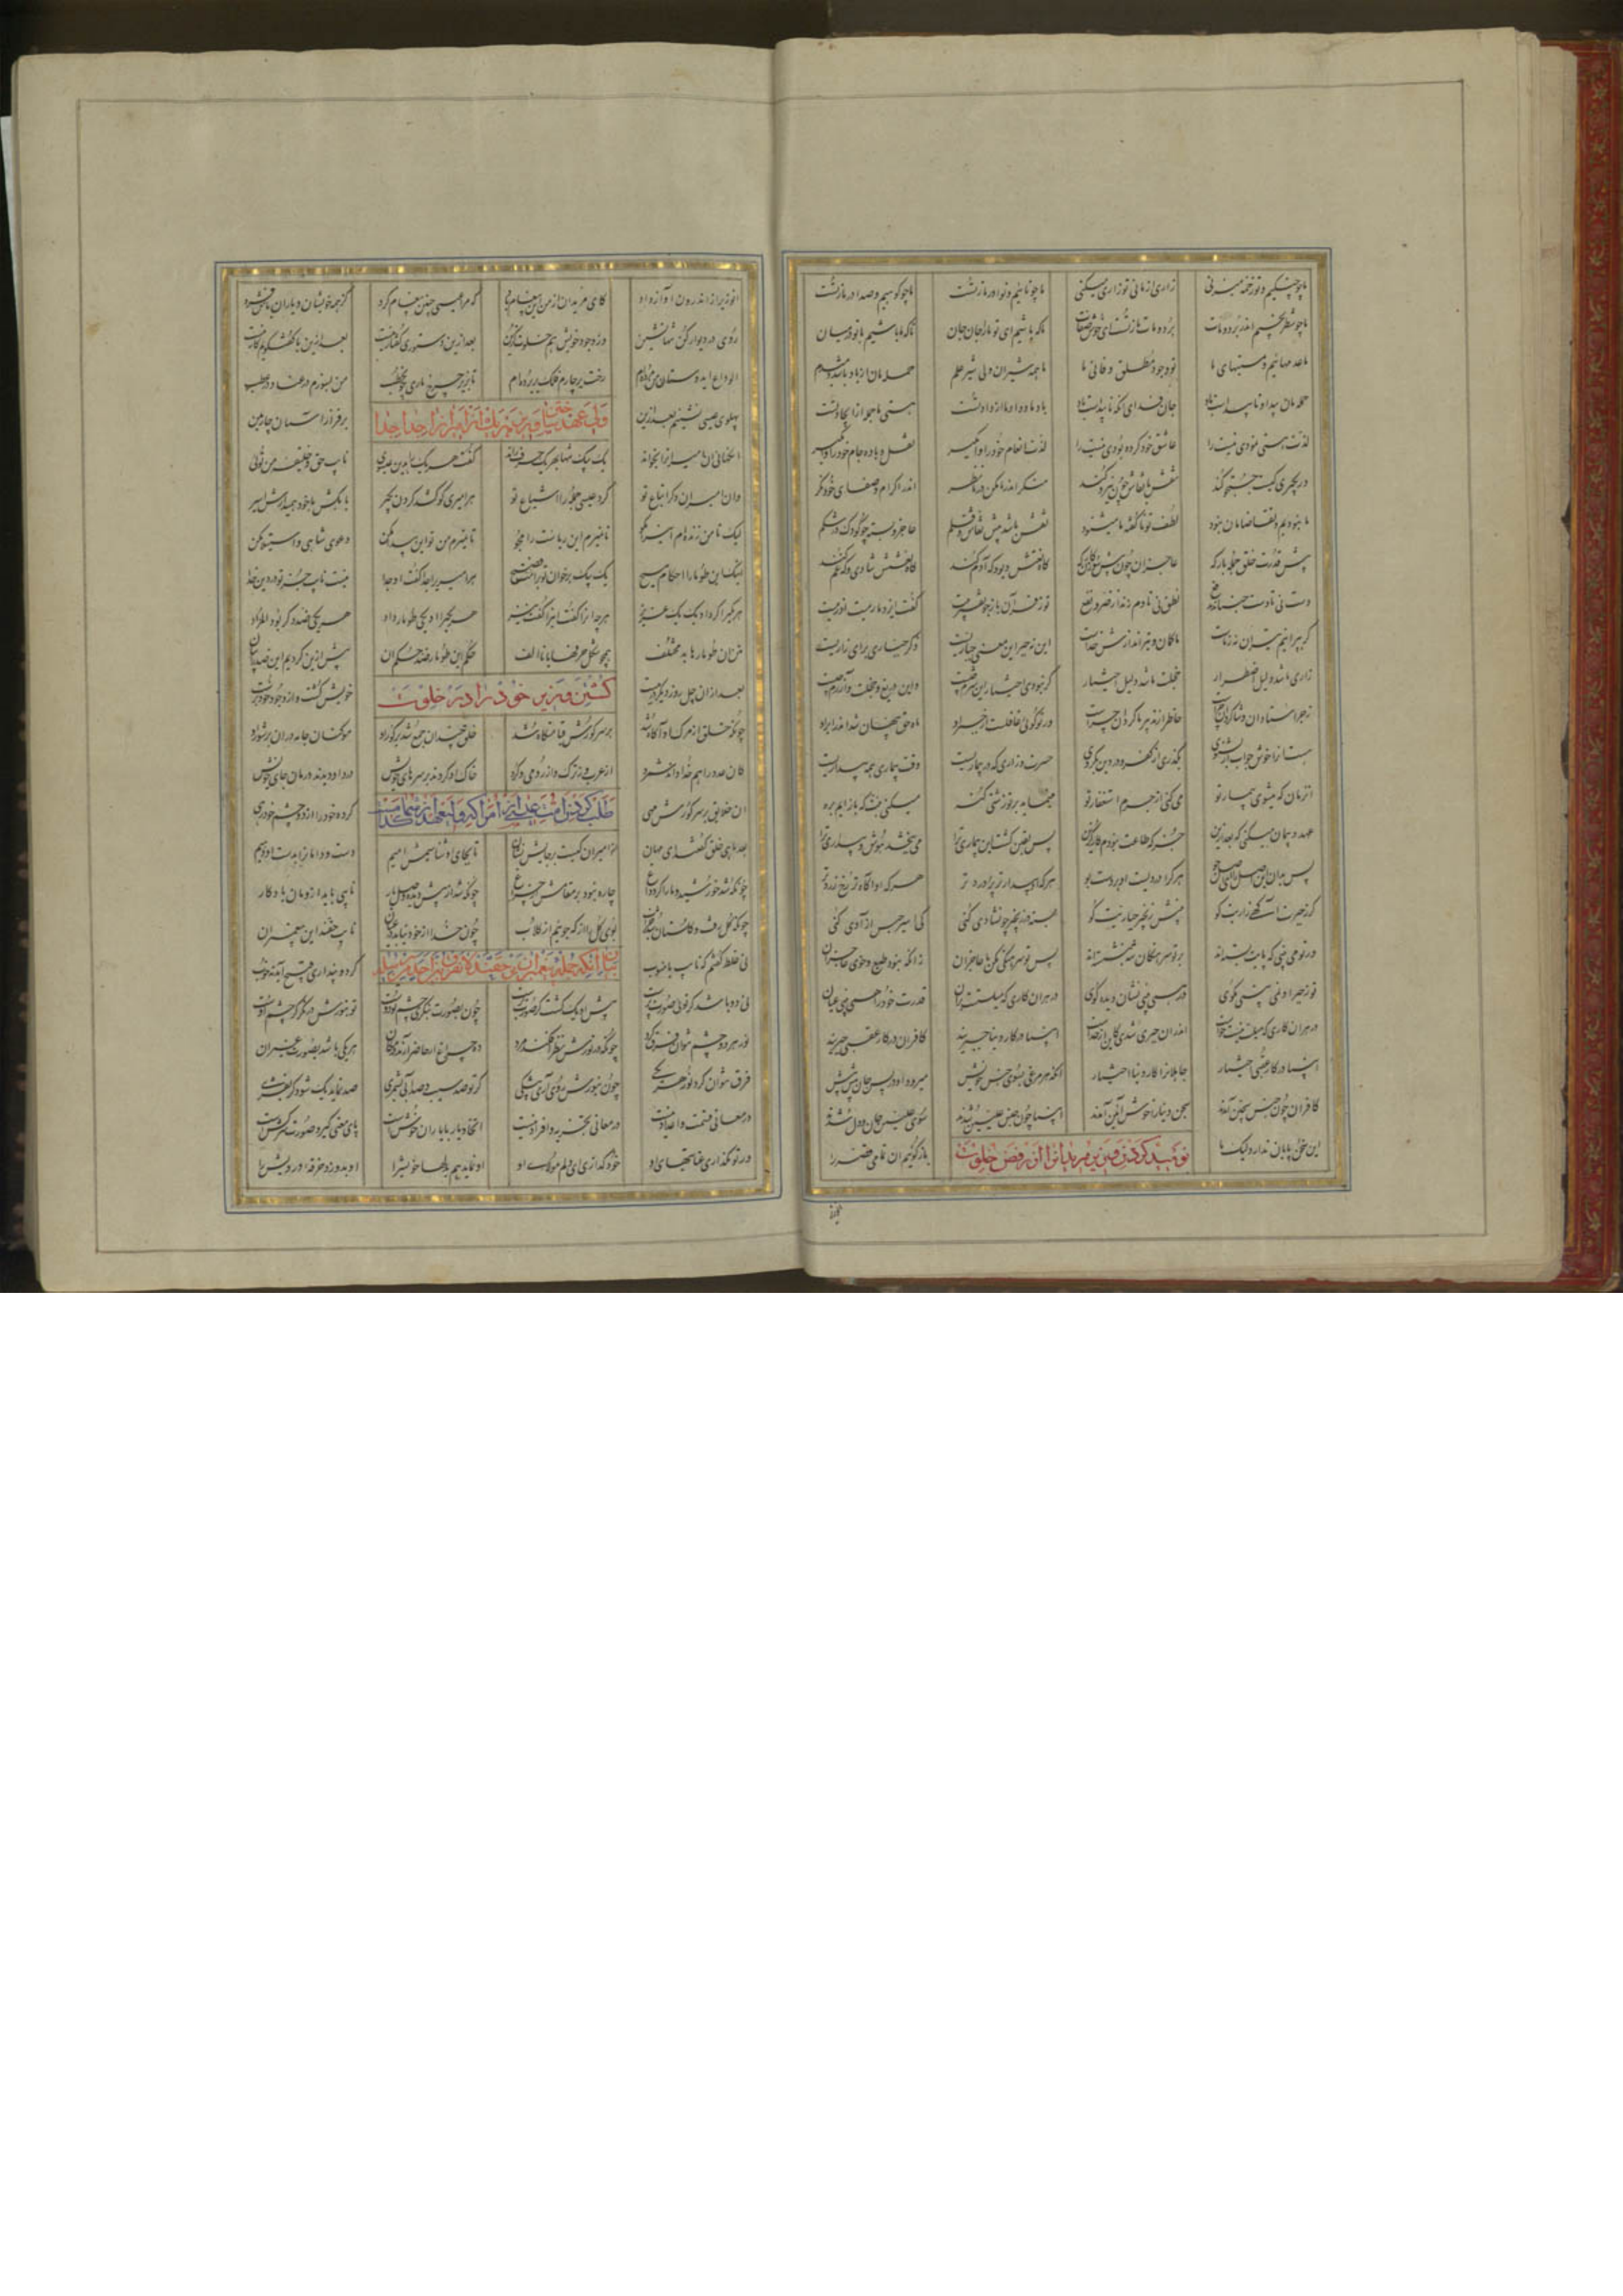 ما چو چنگیم و تو زخمه میزنی زاری از ما نی تو زاری میکنی ما چو نائیم و نوا در ما ز تست ما چو کوهیم و صدا در ما ز تست
ما چو شطرنجیم اندر برد و مات برد و مات ما ز تست ای خوش صفات ما که باشیم ای تو ما را جان جان تا که ما باشیم با تو در میان
ما عدمهائیم و هستیهای ما تو وجود مطلق و فانی نما ما همه شیران ولی شیر علم حمله مان از باد باشد دمبدم
حمله مان پیدا و ناپیداست باد جان فدای آنکه ناپیداست باد باد ما و بود ما از داد تست هستی ما جمله از ایجاد تست
لذت هستی نمودی نیست را عاشق خود کرده بودی نیست را لذت انعام خود را وامگیر نقل و باده جام خود را وامگیر
ور بگیری کیت جست و جو کند نقش با نقاش چون نیرو کند منگر اندر ما مکن در ما نظر اندر اکرام و سخای خود نگر
ما نبودیم و تقاضامان نبود لطف تو ناگفته ما میشنود نقش باشد پیش نقاش و قلم عاجز و بسته چو کودک در شکم
پیش قدرت خلق جمله بارگه عاجزان چون پیش سوزن کارگه گاه نقش دیو و گه آدم کند گاه نقشش شادی و گه غم کند
دست نی تا دست جنباند بدفع نطق نی تا دم زند از ضر و نفع تو ز قرآن باز جو تفسیر بیت گفت ایزد ما رمیت اذ رمیت
گر بپرانیم تیر آن نه ز ماست ما کمان و تیراندازش خداست این نه جبر این معنی جباریست ذکر جباری برای زاریست
زاری ما شد دلیل اضطرار خجلت ما شد دلیل اختیار گر نبودی اختیار این شرم چیست واین دریغ و خجلت و آزرم چیست
زجر استادان و شاگردان چراست خاطر از تدبیرها گردان چراست ور تو گوئی غافلست از جبر او ماه حق پنهان شد اندر ابر او
هست این را خوش جواب ار بشنوی بگذری از کفر و در دین بگروی حسرت و زاری که در بیماریست وقت بیماری همه بیداریست
آن زمان که میشوی بیمار تو می کنی از جرم استغفار تو مینماید بر تو زشتی گنه میکنی نیت که باز آیم بره
عهد و پیمان میکنی که بعد ازین جز که طاعت نبودم کاری گزین پس یقین گشت این که بیماری ترا می ببخشد هوش و بیداری ترا
پس بدان این اصل را ای اصل جو هر کرا دردیست او بردست بو هر که او بیدارتر پر دردتر هر که او آگاه تر رخ زردتر
گر ز جبرش آگهی زاریت کو بینش زنجیر جباریت کو بسته در زنجیر چون شادی کنی کی اسیر حبس آزادی کنی
ور تو می بینی که پایت بسته اند بر تو سرهنگان شه بنشسته اند پس تو سرهنگی مکن با عاجزان زانکه نبود طبع و خوی عاجز آن
چون تو جبر او نمی بینی مگوی ور همی بینی نشان دید گوی در هر آن کاری که میلستت بدان قدرت خود را همی بینی عیان
در هر آن کاری که میلت نیست و خواست اندر آن جبری شدی کاین از خداست انبیا در کار دنیا جبریند کافران در کار عقبی جبریند
انبیا را کار عقبی اختیار جاهلانرا کار دنیا اختیار زانکه هر مرغی بسوی جنس خویش میرود او در پس جان پیش پیش
کافران چون جنس سجین آمدند سجن دنیا را خوش آیین آمدند انبیا چون جنس علیین بدند سوی علیین جان و دل شدند
این سخن پایان ندارد لیک ما نومید کردن وزیر مریدانرا از رفض خلوت باز گوئیم آن تمامی قصه را
آن وزیر از اندرون آواز داد کای مریدان از من این معلوم باد که مرا عیسی چنین پیغام کرد کز همه خویشان و یاران باش فرد
روی در دیوار کن تنها نشین وز وجود خویش هم خلوت گزین بعد ازین دستوری گفتار نیست بعد ازین با گفت و گویم کار نیست
الوداع ای دوستان من مرده ام رخت بر چارم فلک بر برده ام تا بزیر چرخ ناری چون حطب من نسوزم در عنا و در عطب
پهلوی عیسی نشینم بعد ازین ولی عهد ساختن وزیر هر یک امیر را جدا جدا بر فراز آسمان چارمین
وانگهانی آن امیرانرا بخواند یک بیک تنها بهر یک حرف راند گفت هر یک را بدین عیسوی نایب حق و خلیفه من توئی
وان امیران دگر اتباع تو کرد عیسی جمله را اشیاع تو هر امیری کو کشد گردن بگیر یا بکش یا خود همیدارش اسیر
لیک تا من زنده ام این وامگو تا نمیرم این ریاست را مجو تا نمیرم من تو این پیدا مکن دعوی شاهی و استیلا مکن
اینک این طومار و احکام مسیح یک بیک برخوان تو بر امت فصیح هر امیری را جدا گفت او جدا نیست نایب جز تو در دین خدا
هر یکی را کرد او یک یک عزیز هر چه آنرا گفت اینرا گفت نیز هر یکی را او یکی طومار داد هر یکی ضد دگر بود المراد
متن آن طومارها بد مختلف همچو شکل حرفها یا تا الف حکم این طومار ضد حکم آن پیش ازین کردیم این ضد را بیان
بعد از آن چل روز دیگر در ببست کشتن وزیر خود را در خلوت خویش کشت و از وجود خود برست
چونکه خلق از مرگ او آگاه شد بر سر گورش قیامتگاه شد خلق چندان جمع شد بر گور او مو کنان جامه دران در شور او
کان عدد را هم خدا داند شمرد از عرب وز ترک و از رومی و کرد خاک او کردند بر سرهای خویش درد او دیدند درمان جای خویش
آن خلایق بر سر گورش مهی طلب کردن امت عیسی از امرا که ولیعهد از شما کدامست کرده خون را از دو چشم خود رهی
بعد ماهی خلق گفتند ای مهان از امیران کیست بر جایش نشان تا بجای او شناسیمش امام دست و دامانرا بدست او دهیم
چونکه شد خورشید و ما را کرد داغ چاره نبود بر مقامش جز چراغ چونکه شد از پیش دیده وصل یار نایبی باید ازومان یادگار
چونکه گل رفت و گلستان شد خراب بوی گل را از که جوییم از گلاب چون خدا اندر نیاید در عیان نایب حقند این پیغمبران
نی غلط گفتم که نایب با منوب بیان آنکه جمله پیغمبران حقند لا نفرق بین احد من رسله گر دو پنداری قبیح آید نه خوب
نی دو باشد گر توئی صورت پرست پیش او یک گشت کز صورت برست چون بصورت بنگری چشم تو دوست تو بنورش در نگر کز چشم رست
نور هر دو چشم نتوان فرق کرد چونکه در نورش نظر افکند مرد ده چراغ ار حاضر آید در مکان هر یکی باشد بصورت غیر آن
فرق نتوان کرد نور هر یکی چون بنورش روی آری بی شکی گر تو صد سیب و صد آبی بشمری صد نماید یک شود چون بفشری
در معانی قسمت و اعداد نیست در معانی تجزیه و افراد نیست اتحاد یار با یاران خوشست پای معنی گیر و صورت سرکشست
ور تو نگذاری عنایتهای او خود گدازی ای دلم مولای او او نماید هم بدلها خویش را او بدوزد خرقه درویش را